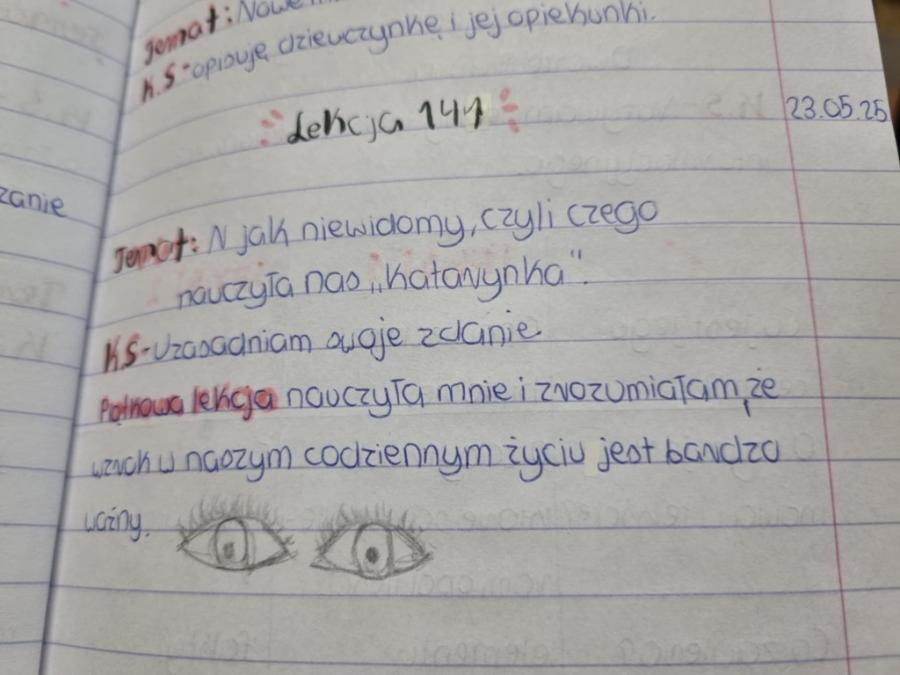 Temat: Nowe
K.S-opisuję dziewczynkę i jej opiekunki.
Lekcja 141
23.05.25
zanie
Temat: N jak niewidomy, czyli czego
nauczyła nas „Katarynka".
K.S-Uzasadniam swoje zdanie
nauczyła mnie i zrozumiałam, że
wzrok w naszym codziennym życiu jest bardzo
ważny.